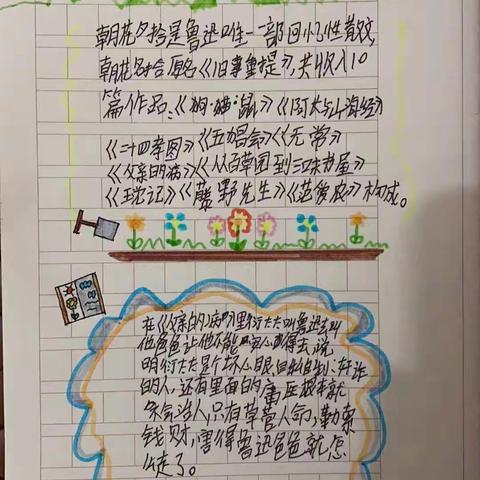 朝花夕拾是鲁迅唯一一部回忆性散文,
朝花夕拾原名《旧事重提》,共收入10
篇作品:《狗·猫·鼠》《阿长与山海经》
《二十四孝图》《五猖会》《无常》
《父亲的病》《从百草园到三味书屋》
《琐记》《藤野先生》《范爱农》构成。
在《父亲的病》里衍太太叫鲁迅去叫
他爸爸让他不能 得去,说
明衍太太是个坏心眼、自私自利、奸诈
的人,还有里面的庸医根本就
不会治人,只有草菅人命,勒索
钱财,害得鲁迅爸爸就怎
么走了。